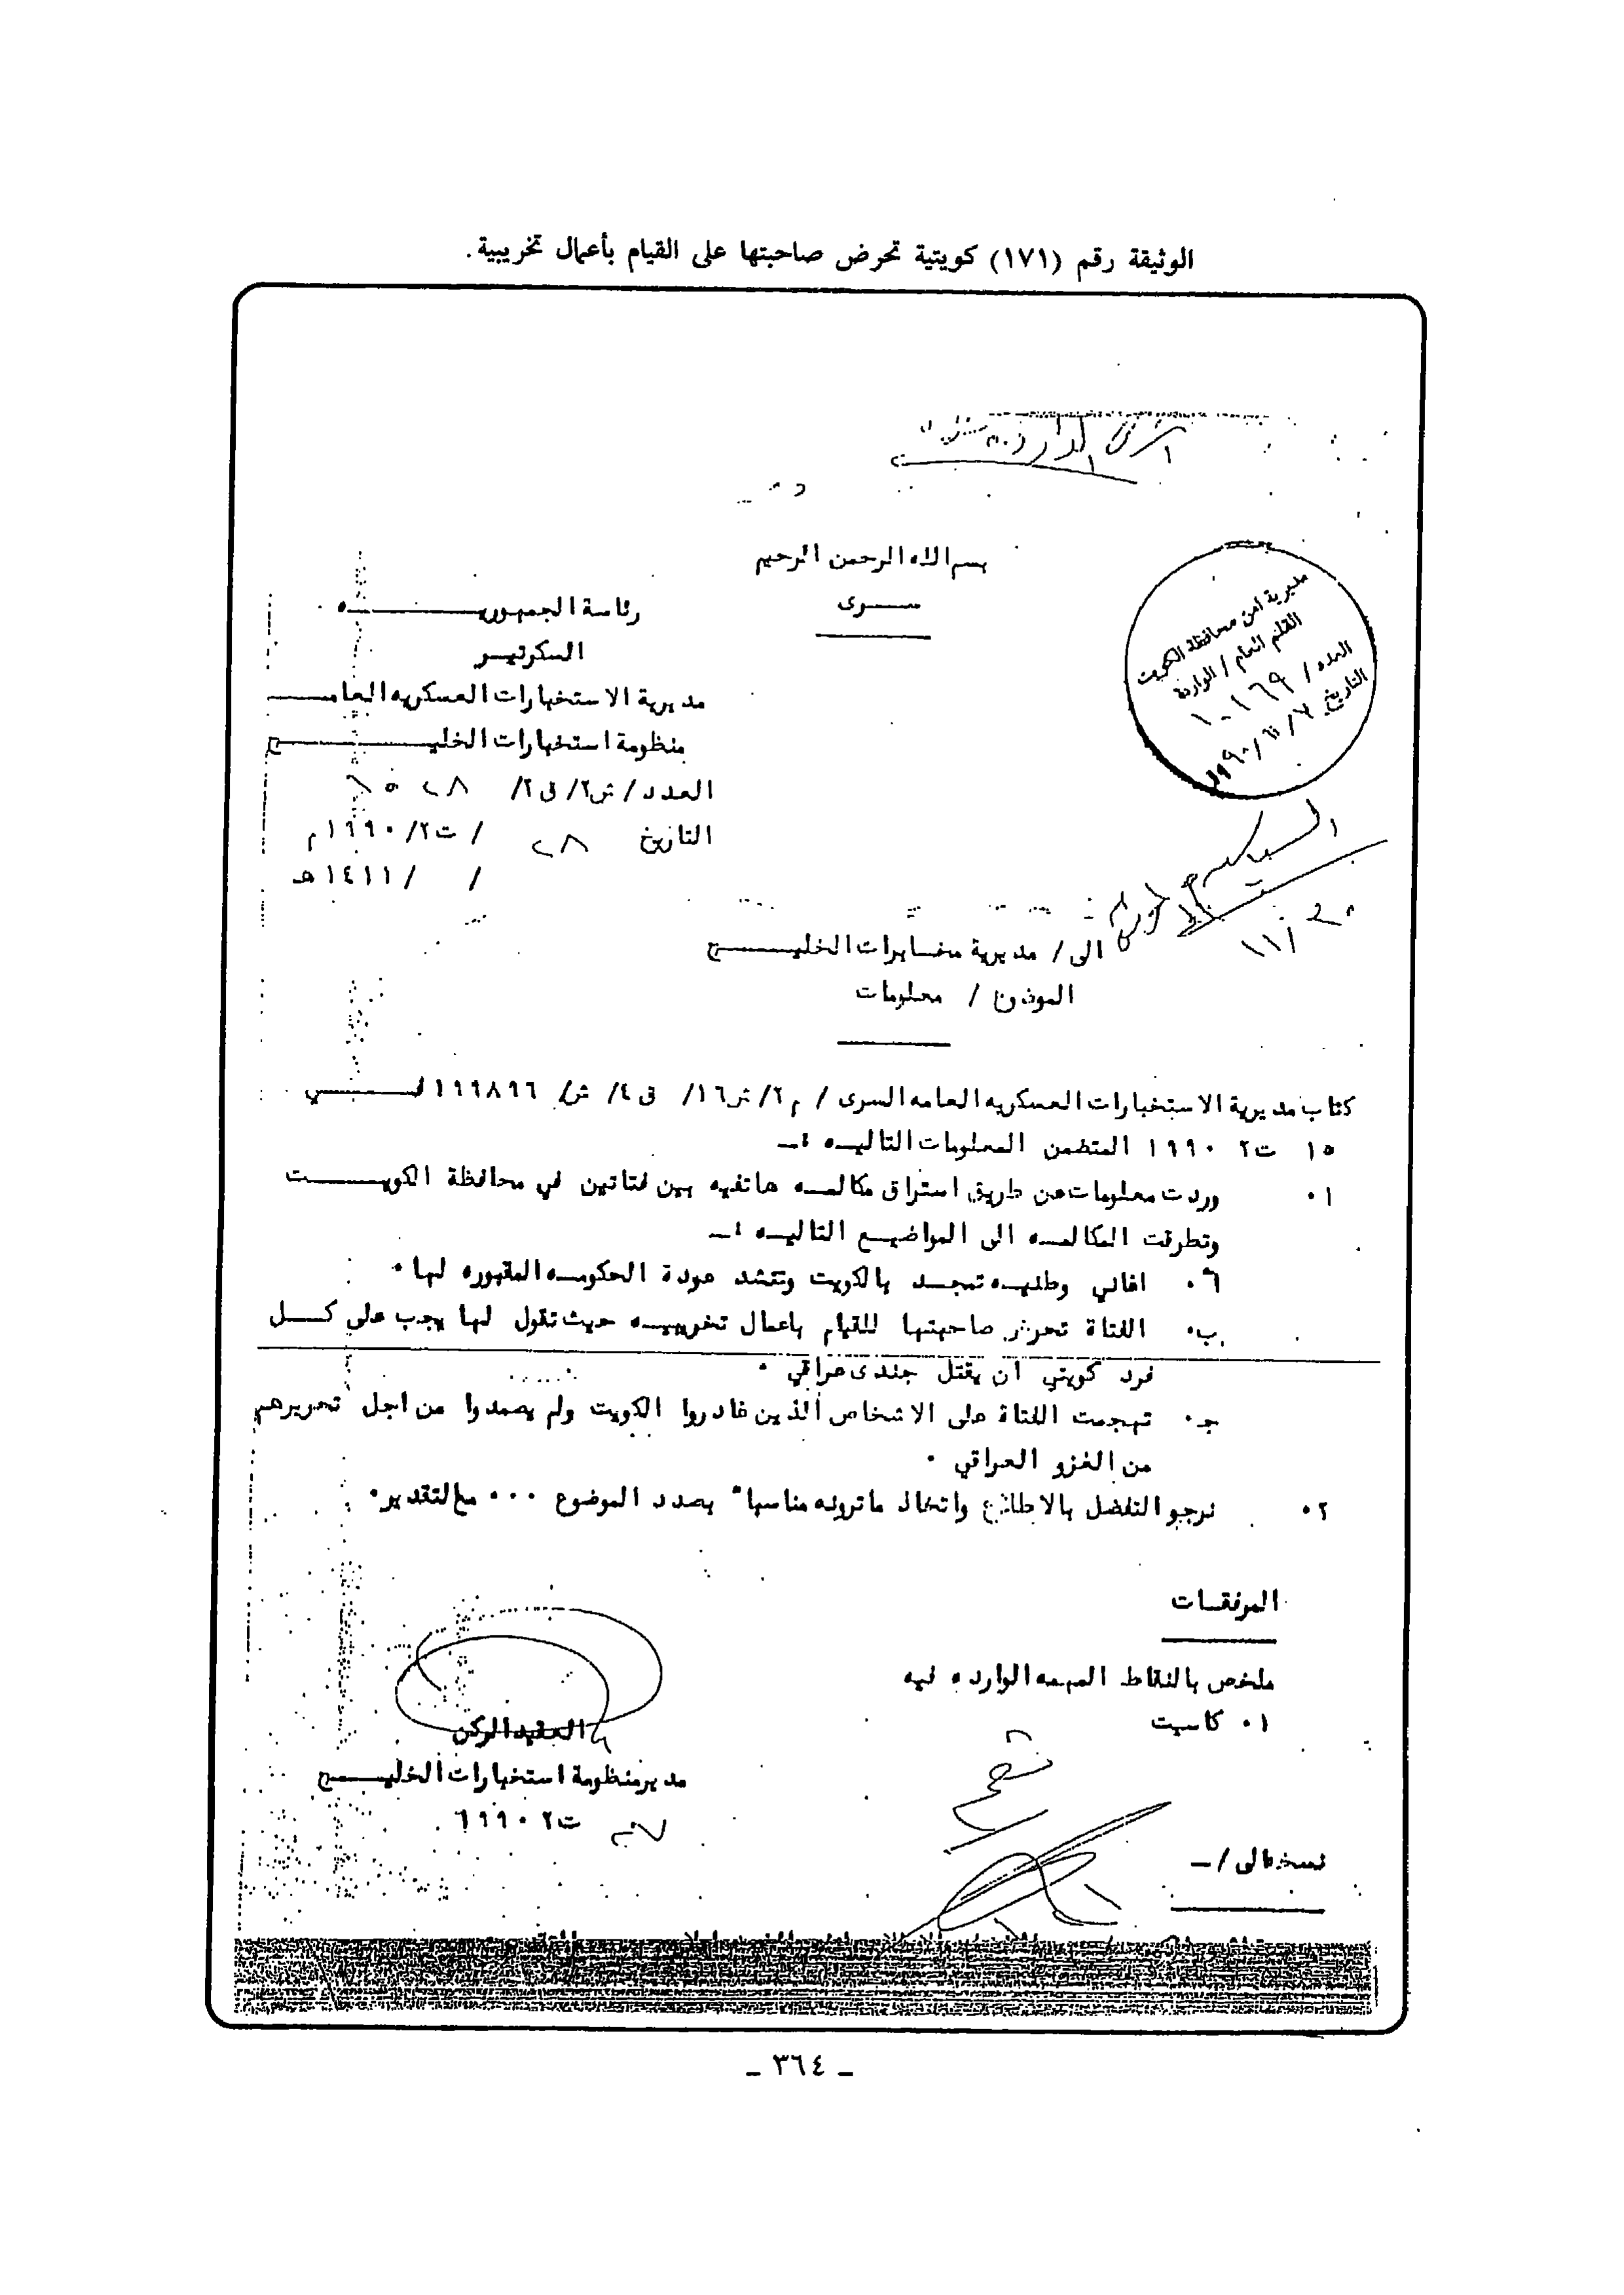 الوثيقة رقم (١٧١) كويتية تحرض صاحبتها على القيام بأعمال تخريبية.
بسم الله الرحمن الرحيم
سرى
رئاسة الجمهوريه
السكرتير
مديرية الاستخبارات العسكريه العامه
منظومة استخبارات الخليج
العدد/ ش٢/ ق٢/
التاريخ ٢٨ / ت٢/ ١٩٩٠م
/ / ١٤١١هـ
مديرية امن محافظة الكويت
القلم العام / الواردة
العدد/ ١٠١٦٩
التاريخ
الى/ مديرية مخابرات الخليج
الموضوع / معلومات
كتاب مديرية الاستخبارات العسكريه العامه السرى / م٢/ ش١٦/ ق٤/ ش/ ١٩٩٨٩٦ في
١٥ ت٢ ١٩٩٠ المتضمن المعلومات التاليه :ـ
٠١ وردت معلومات عن طريق استراق مكالمه هاتفيه بين فتاتين في محافظة الكويت
وتطرقت المكالمه الى المواضيع التاليه :ـ
٠أ اغاني وطنيه تمجد بالكويت وتنشد عودة الحكومه المقبوره لها٠
ب٠ الفتاة تحرض صاحبتها للقيام باعمال تخريبيه حيث تقول لها يجب على كل
فرد كويتي ان يقتل جندى عراقي ٠
جـ٠ تهجمت الفتاة على الاشخاص الذين غادروا الكويت ولم يصمدوا من اجل تحريرهم
من الغزو العراقي ٠
٠٢ نرجو التفضل بالاطلاع واتخاذ ماترونه مناسبا" بصدد الموضوع ٠٠٠ مع التقدير٠
المرفقات
ملخص بالنقاط المهمه الوارده فيه
٠١ كاسيت
العقيد الركن
مدير منظومة استخبارات الخليج
ت٢ ١٩٩٠
نسخه الى/ ـ
ـ ٣٦٤ ـ